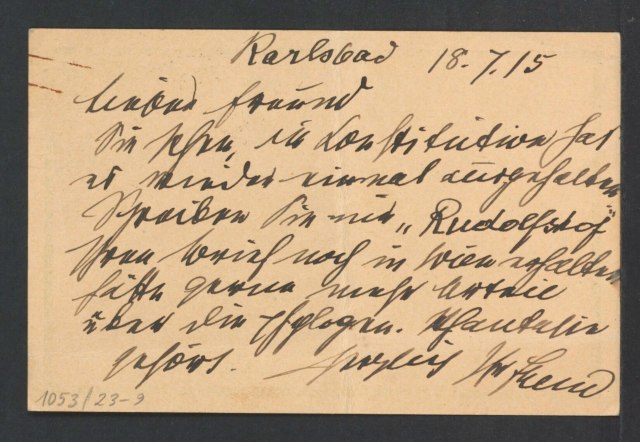 Karlsbad 18.7.15
Lieber Freund
Sie sehen, die Constitution hat
es wieder einmal ausgehalten.
Schreiben Sie mir „Rudolfshof"
Ihren Brief noch in Wien erhalten
hätte gerne mehr Urteil
über die phylogen. Phantasie
gehört. Herzlich Ihr Freud
1053/23-9